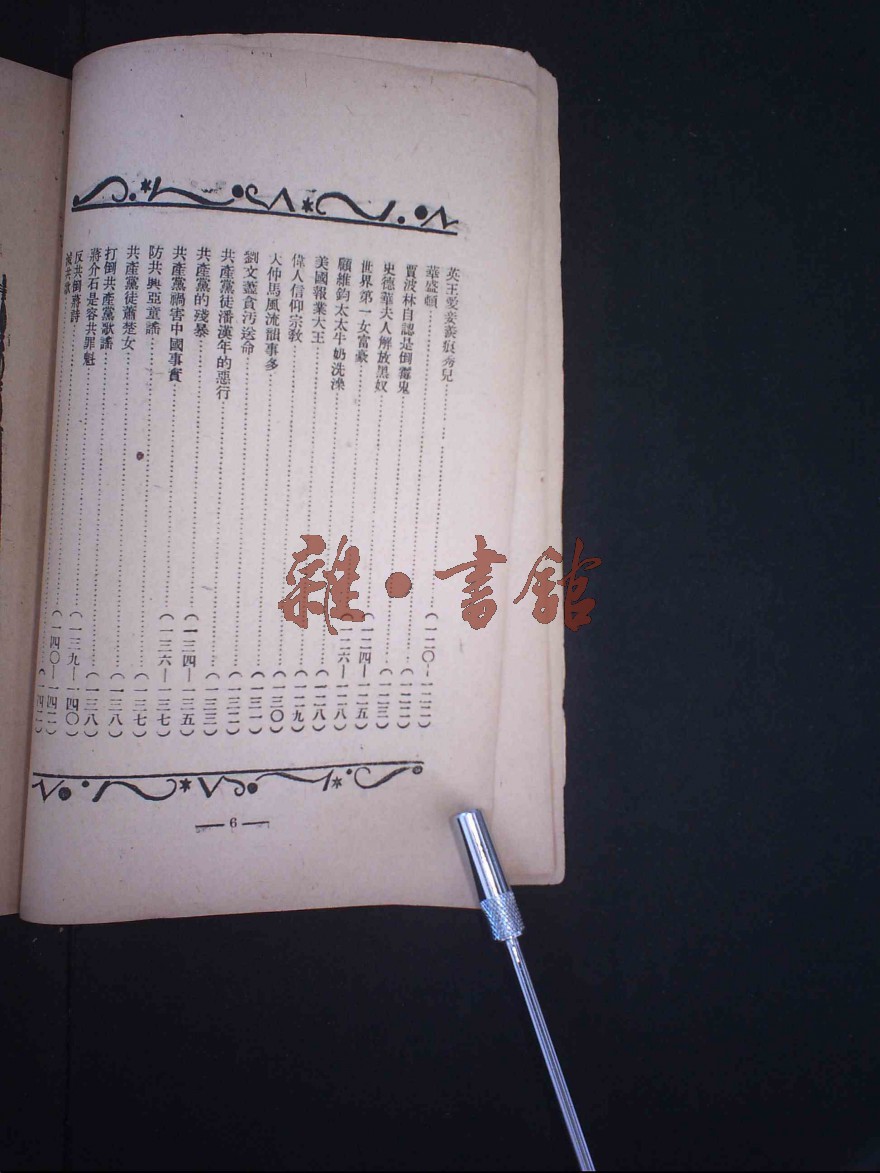 英王愛妾善痕奔兒……(一二〇—一二二)
華盛頓……(一二二)
賈波林自認是倒霉鬼……(一二三)
史德華夫人解放黑奴……(一二四—一二五)
世界第一女富豪……(一二六—一二八)
顧維鈞太太牛奶洗澡……(一二八)
美國報業大王……(一二九)
偉人信仰宗教……(一三〇)
大仲馬風流韻事多……(一三一)
劉文蓋貪污送命……(一三二)
共產黨徒潘漢年的惡行……(一三三)
共產黨的殘暴……(一三四—一三五)
共產黨禍害中國事實……(一三六—一三七)
防共興亞童謠……(一三七)
共產黨徒蕭楚女……(一三八)
打倒共產黨歌謠……(一三八)
蔣介石是容共罪魁……(一三九—一四〇)
反共倒蔣詩……(一四〇—一四二)
滅共歌……(一四二)
6
雜·書館